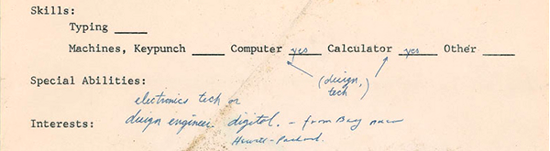 Skills:
Typing ____
Machines, Keypunch ____ Computer yes Calculator yes Other ____
(design, tech)
Special Abilities:
electronics tech or
Interests: design engineer digital. - from Bay near
Hewlett-Packard.